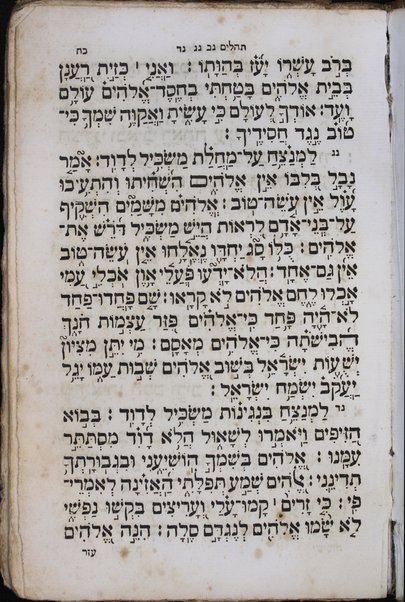 תהלים נב נג נד כח
בְּרֹב עָשְׁרוֹ יָעֹז בְּהַוָּתוֹ׃ וַאֲנִי ׀ כְּזַיִת רַעֲנָן
בְּבֵית אֱלֹהִים בָּטַחְתִּי בְחֶסֶד־אֱלֹהִים עוֹלָם
וָעֶד׃ אוֹדְךָ לְעוֹלָם כִּי עָשִׂיתָ וַאֲקַוֶּה שִׁמְךָ כִּי־
טוֹב נֶגֶד חֲסִידֶיךָ׃
נג לַמְנַצֵּחַ עַל־מַחֲלַת מַשְׂכִּיל לְדָוִד׃ אָמַר
נָבָל בְּלִבּוֹ אֵין אֱלֹהִים הִשְׁחִיתוּ וְהִתְעִיבוּ
עָוֶל אֵין עֹשֵׂה־טוֹב׃ אֱלֹהִים מִשָּׁמַיִם הִשְׁקִיף
עַל־בְּנֵי־אָדָם לִרְאוֹת הֲיֵשׁ מַשְׂכִּיל דֹּרֵשׁ אֶת־
אֱלֹהִים׃ כֻּלּוֹ סָג יַחְדָּו נֶאֱלָחוּ אֵין עֹשֵׂה־טוֹב
אֵין גַּם־אֶחָד׃ הֲלֹא־יָדְעוּ פֹּעֲלֵי אָוֶן אֹכְלֵי עַמִּי
אָכְלוּ לֶחֶם אֱלֹהִים לֹא קָרָאוּ׃ שָׁם פָּחֲדוּ־פַחַד
לֹא־הָיָה פָחַד כִּי־אֱלֹהִים פִּזַּר עַצְמוֹת חֹנָךְ
הֱבִישֹׁתָה כִּי־אֱלֹהִים מְאָסָם׃ מִי יִתֵּן מִצִּיּוֹן
יְשֻׁעוֹת יִשְׂרָאֵל בְּשׁוּב אֱלֹהִים שְׁבוּת עַמּוֹ יָגֵל
יַעֲקֹב יִשְׂמַח יִשְׂרָאֵל׃
נד לַמְנַצֵּחַ בִּנְגִינוֹת מַשְׂכִּיל לְדָוִד׃ בְּבוֹא
הַזִּיפִים וַיֹּאמְרוּ לְשָׁאוּל הֲלֹא דָוִד מִסְתַּתֵּר
עִמָּנוּ׃ אֱלֹהִים בְּשִׁמְךָ הוֹשִׁיעֵנִי וּבִגְבוּרָתְךָ
תְדִינֵנִי׃ אֱלֹהִים שְׁמַע תְּפִלָּתִי הַאֲזִינָה לְאִמְרֵי־
פִי׃ כִּי זָרִים ׀ קָמוּ־עָלַי וְעָרִיצִים בִּקְשׁוּ נַפְשִׁי
לֹא שָׂמוּ אֱלֹהִים לְנֶגְדָּם סֶלָה׃ הִנֵּה אֱלֹהִים
עזר